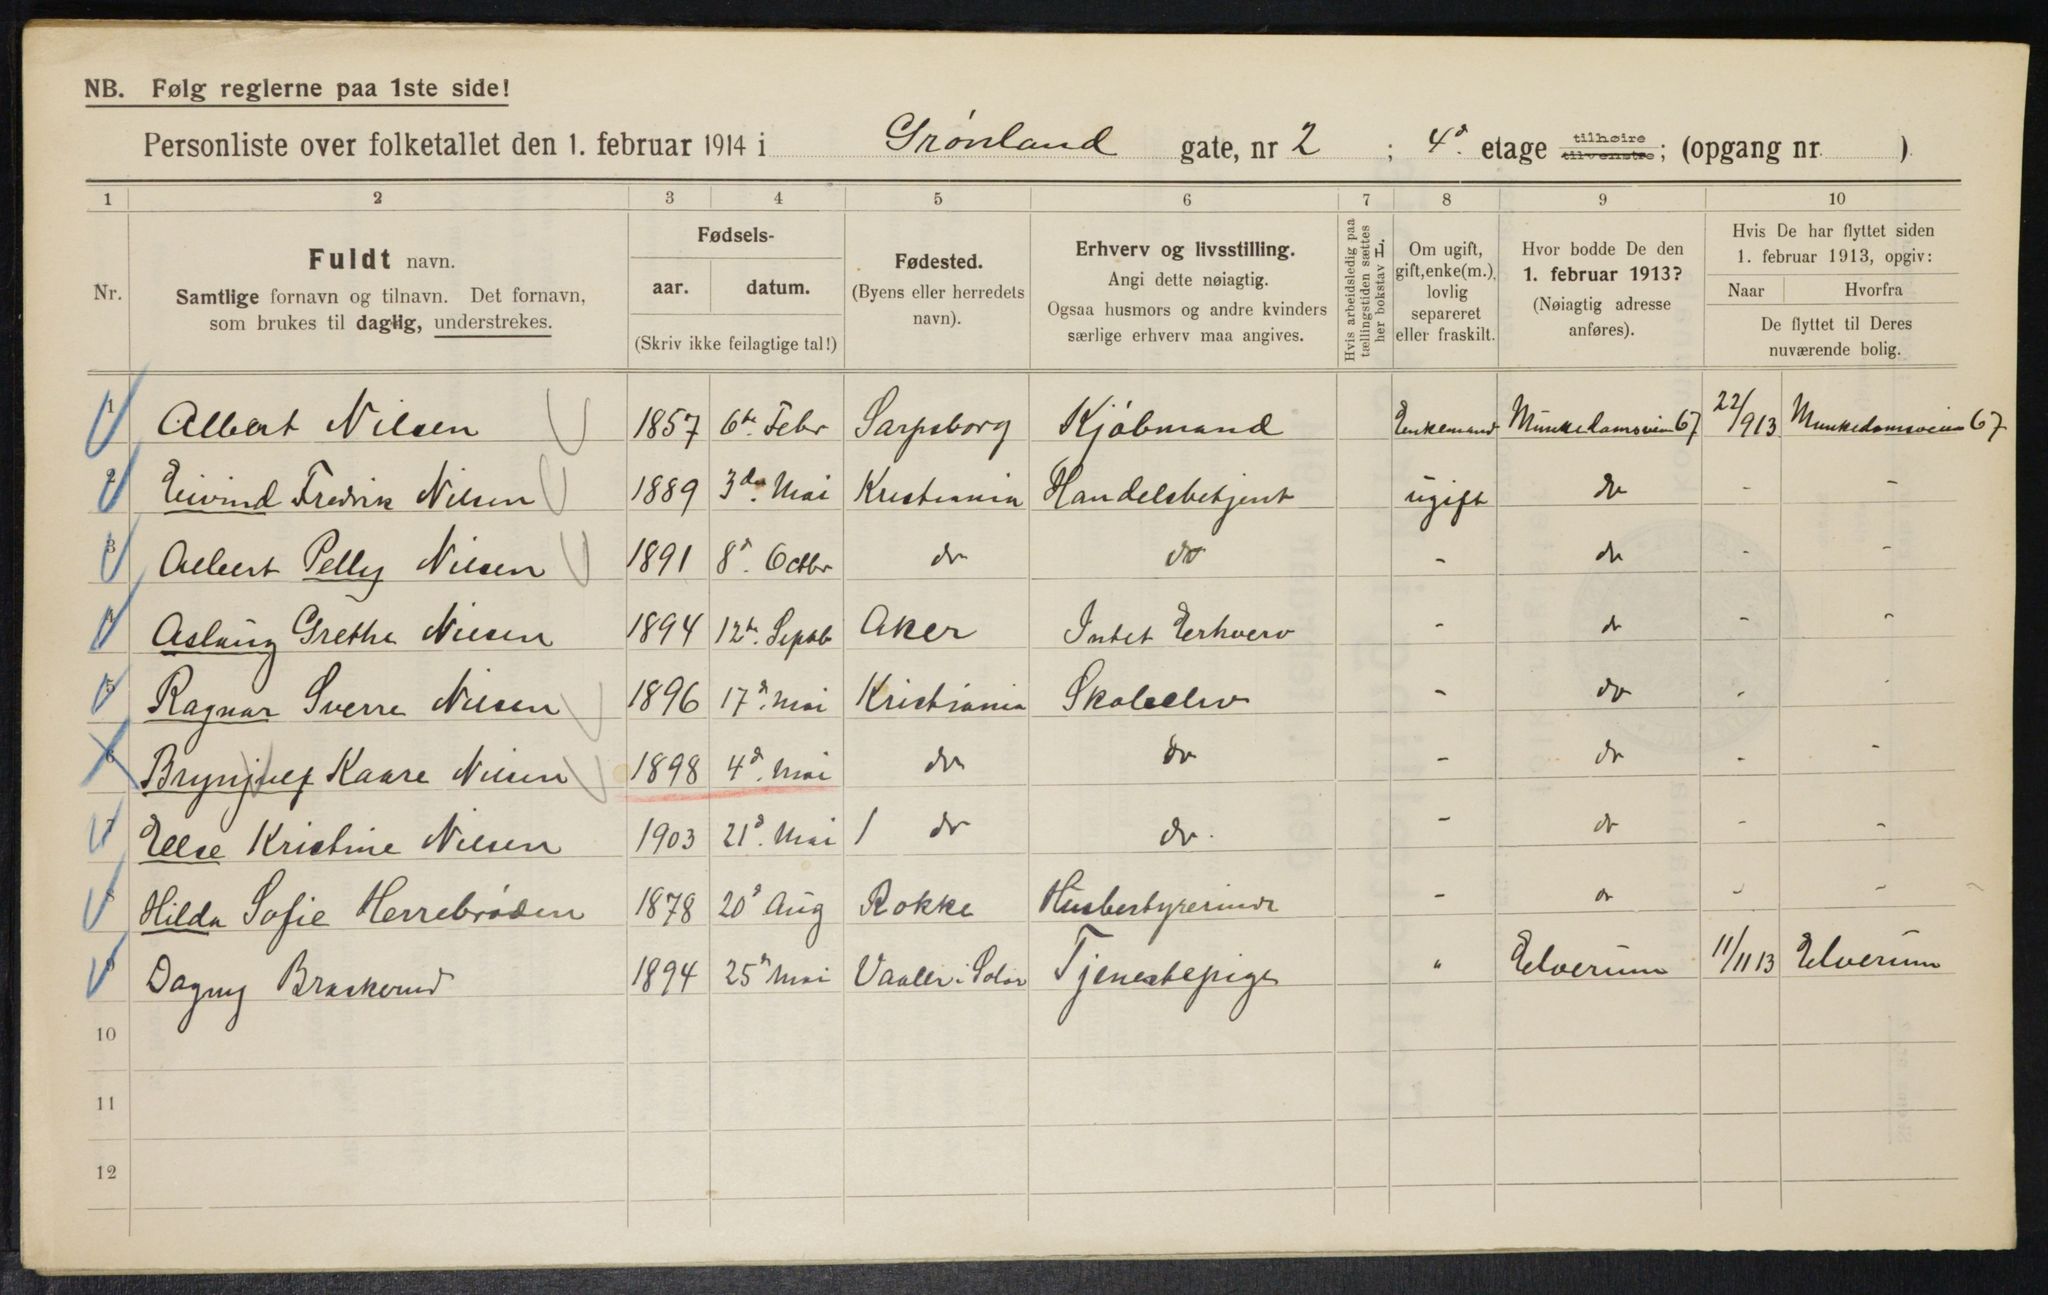 NB. Følg reglerne paa 1ste side!
Personliste over folketallet den 1. februar 1914 i Grønland gate, nr 2 ; 4d. etage tilhøire tilvenstre; (opgang nr )
1 2 3 4 5 6 7 8 9 10
Nr.
Fuldt navn.
Samtlige fornavn og tilnavn. Det fornavn,
som brukes til daglig, understrekes.
Fødsels-
aar. datum.
(Skriv ikke feilagtige tal!)
Fødested.
(Byens eller herredets
navn).
Erhverv og livsstilling.
Angi dette nøiagtig.
Ogsaa husmors og andre kvinders
særlige erhverv maa angives.
Hvis arbeidsledig paa
tællingstiden sættes
her bokstav L.
Om ugift,
gift, enke(m.),
lovlig
separeret
eller fraskilt.
Hvor bodde De den
1. februar 1913?
(Nøiagtig adresse
anføres).
Hvis De har flyttet siden
1. februar 1913, opgiv:
Naar Hvorfra
De flyttet til Deres
nuværende bolig.
1 Albert Nilsen 1857 6te. Febr Sarpsborg Kjøbmand Enkemand Munkedamsveien 67 22/913 Munkedamsveien 67
2 Eivind Fredrik Nilsen 1889 3de. Mai Kristiania Handelsbetjent ugift do - -
3 Albert Pelly Nilsen 1891 8d. Octbr do do - do - -
4 Aslaug Grethe Nilsen 1894 12te. Septb Aker Intet Erhverv - do - -
5 Ragnar Sverre Nilsen 1896 17d. Mai Kristiania Skoleelev - do - -
6 Brynjulf Kaare Nilsen 1898 4d. Mai do do - do - -
7 Else Kristine Nilsen 1903 21d. Mai 1 do do - do - -
8 Hilda Sofie Herrebrøden 1878 20d Aug Rokke Husbestyrerinde - do - -
9 Dagny Braskerud 1894 25d Mai Vaaler i Solør Tjenestepige " Elverum 11/11 13 Elverum
10
11
12